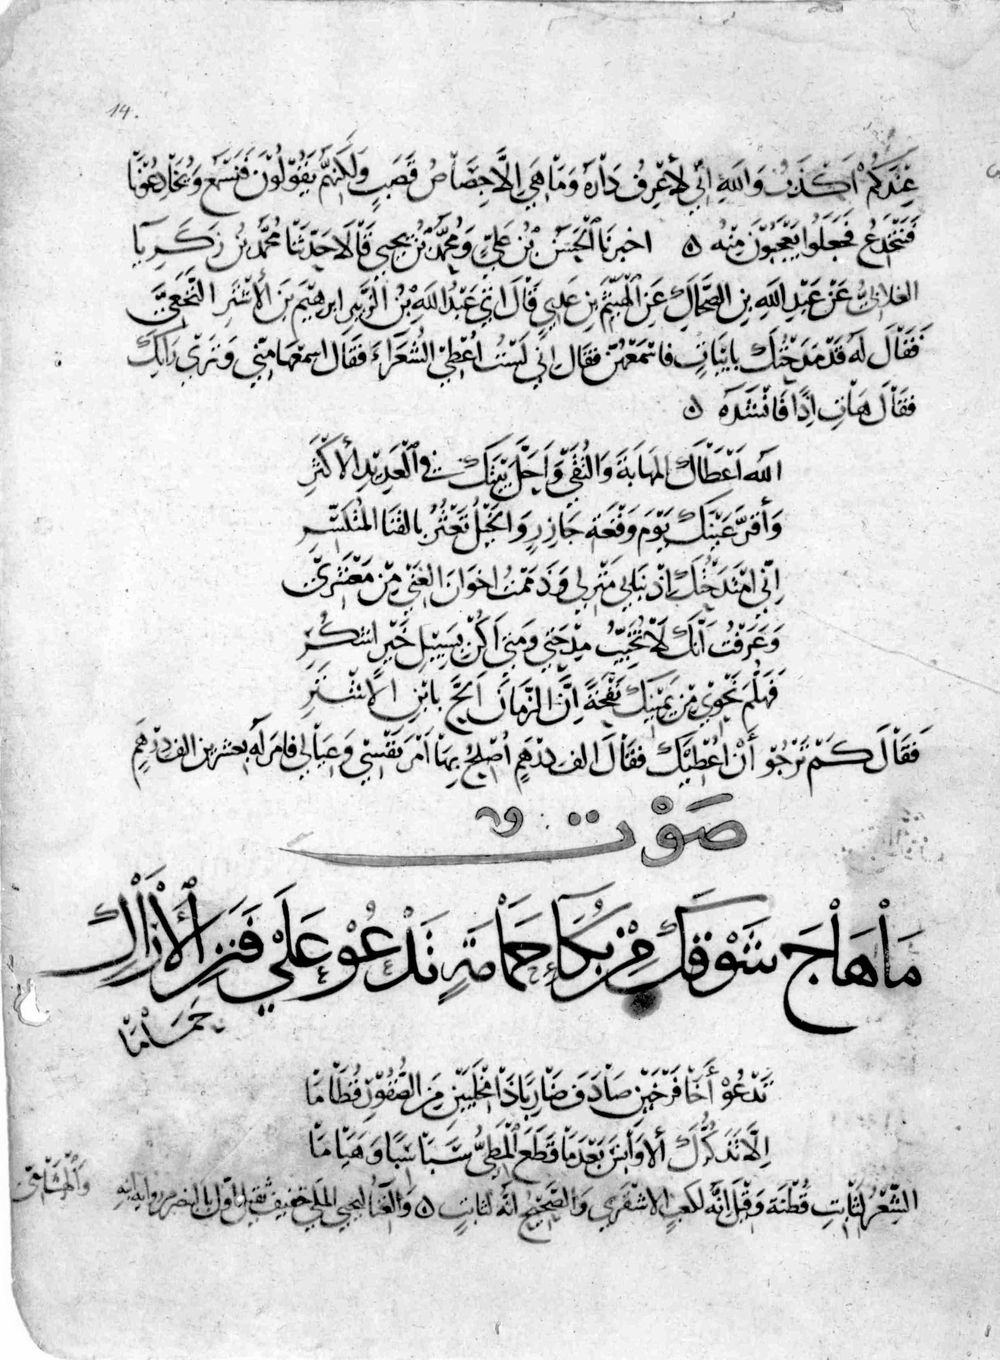 14.
عندكم اكذب والله اني لاعرف داره وما هي الا خصاص قصب ولكنهم يقولون فنسمع ويخادعوننا
فننخدع فجعلوا يتعجبون منه ۵ اخبرنا الحسن بن علي ومحمد بن يحيى قالا حدثنا محمد بن زكريا
الغلابي عن عبد الله بن الضحاك عن الهيثم بن عدي قال اتى عبد الله بن الزبير ابرهيم بن الاشتر النخعي
فقال له قد مدحتك بابيات فاسمعهن فقال اني لست اعطي الشعراء فقال اسمعها مني وترى رايك
فقال هات اذا فانشده ۵
الله اعطاك المهابة والتقى واحل بيتك في العديد الاكثر
وأقر عينك يوم وقعة خازر والخيل تعثر بالقنا المتكسر
اني امتدحتك اذ نبا بي منزلي وذممت اخوان الغنى من معشري
وعرفت انك لا تخيب مدحتي ومتى اكن بسبيل خير اشكر
فهلم نحوي من يمينك نفحة ان الزمان الح يابن الاشتر
فقال كم ترجو أن اعطيك فقال الف درهم اصلح بها امر نفسي وعيالي فامر له بعشرين الف درهم
صوت
ما هاج شوقك من بكاء حمامة تدعو على فنن الاراك
حماما
تدعو أخا فرخين صادف ضاريا ذا مخلبين من الصقور قطاما
الا تذكرك الاوانس بعدما قطع المطي سباسبا وهياما
الشعر لثابت قطنة وقيل انه لكعب الاشقري والصحيح انه لثابت ۵ والغنا ليحيى المكي خفيف ثقيل اول بالبنصر رواية ابنه
والهشامي